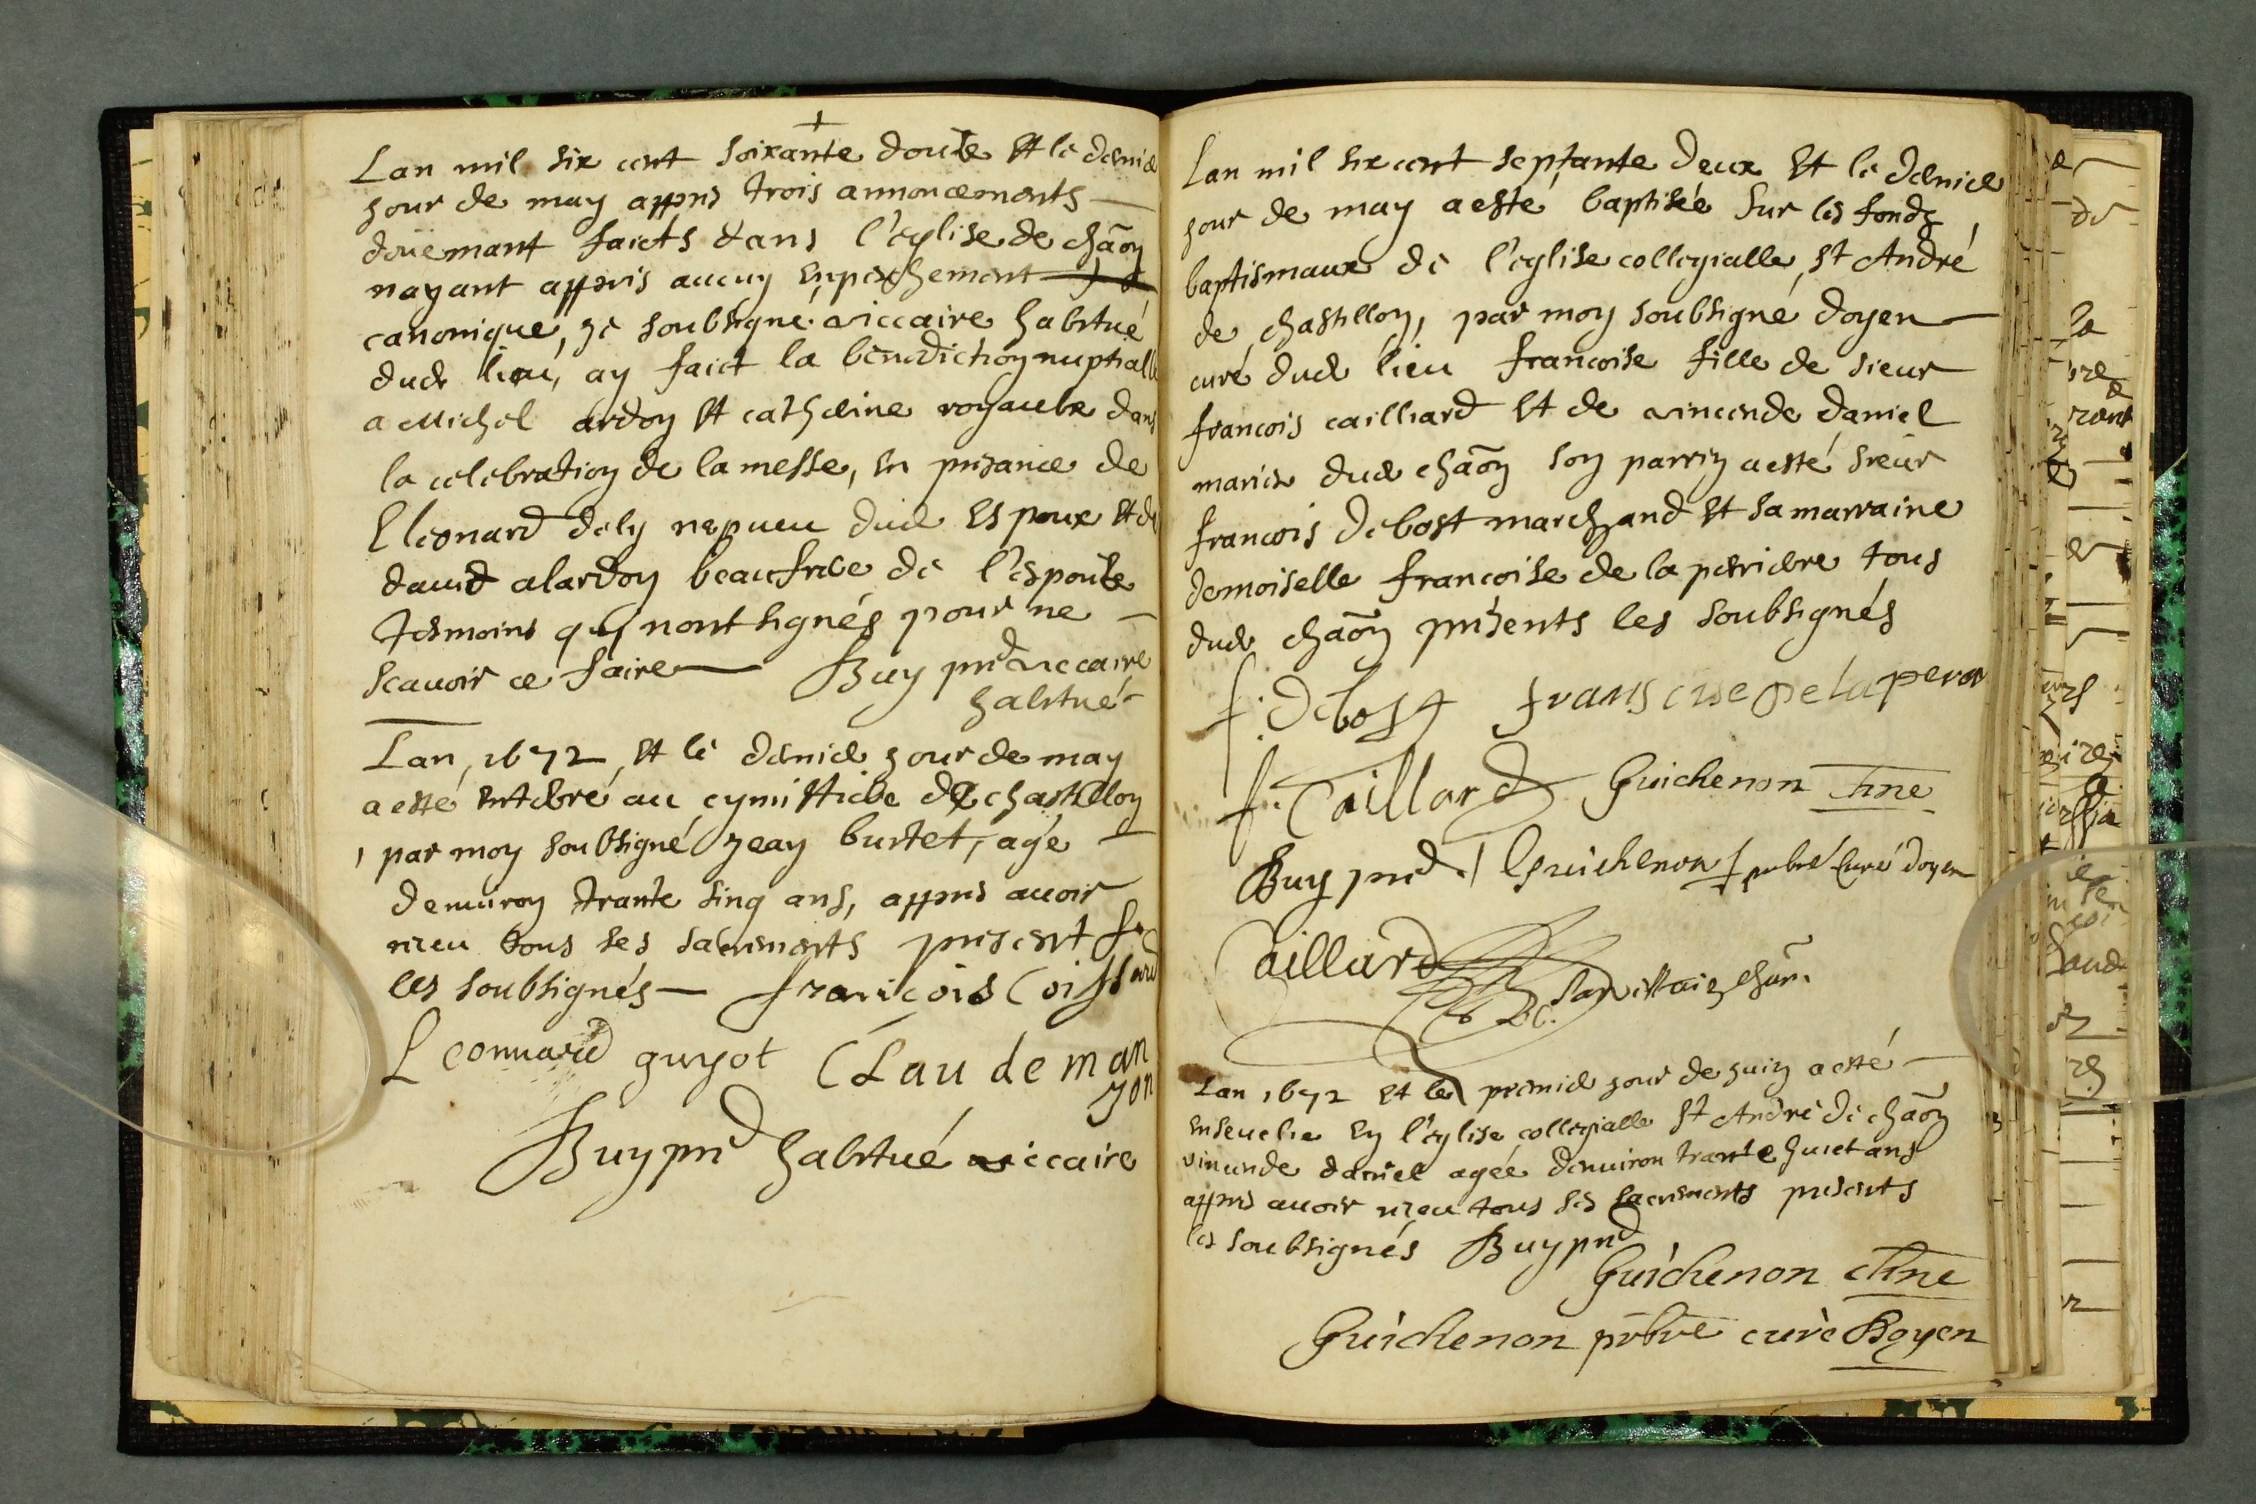 Lan mil six cent soixante douze et le dernier
jour de may appres trois annoncements
düemant faicts dans l'eglise de chãon
nayant appris aucun enpeschement
canonique, je soubsigné viccaire habitué
dud lieu, ay faict la benediction nuptialle
a Michel ardon et catherine royaube dans
la celebration de la messe, en presance de
Eleonard dely nepueu dud Espoux et de
dauid alardon beaufrere de l'espouse
tesmoins qui nont signés pour ne
scauoir ce faire Buy prd viccaire
habitué
Lan, 1672, et le dernier jour de may
a esté enterré au cymittiere de chastillon
par moy soubsigné jean burtet, agé
denuiron trante sinq ans, appres auoir
receu tous ses sacrements present
les soubsignés françois Coissard
Leonnard guyot Claude man
gon
Buy prd habitué viccaire
Lan mil six cent septante deux et le dernier
jour de may a esté baptisée sur les fonds
baptismaux de l'eglise collegialle st André
de chastillon, par moy soubsigné doyen
curé dud lieu francoise fille de sieur
francois cailliard et de vincende daniel
mariés dud chãon son parrin a esté sieur
francois debost marchand et sa marraine
demoiselle francoise de la perriere tous
dud chãon présents les soubsignés
f. Debost franscise de la perar
f. Caillard Guichenon chne
Buy prd. Guichenon pbre Curé doyen
Caillard
Lan 1672 et le premier jour de juin a esté
enseuelie en l'eglise collegialle St André de chãon
vincende daniel agée denuiron trante huict ans
appres auoir receu tous ses sacrements presents
les soubsignés Buy prd
Guichenon chne
Guichenon prbre curè Doyen